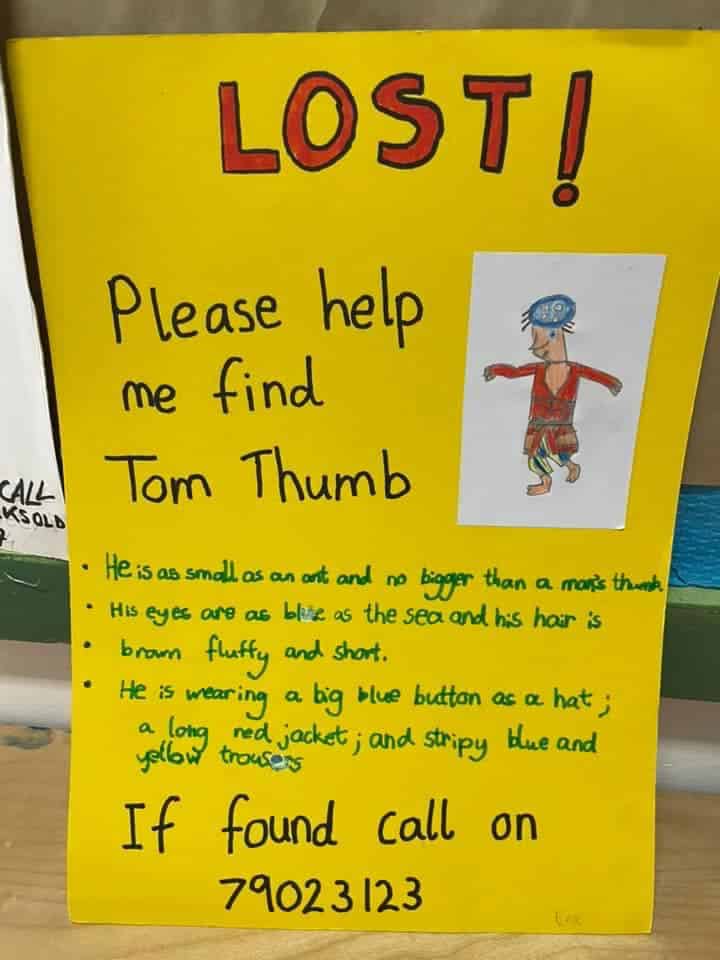 LOST!
Please help
me find
Tom Thumb
• He is as small as an ant and no bigger than a man's thumb.
• His eyes are as blue as the sea and his hair is
• brown fluffy and short.
• He is wearing a big blue button as a hat;
a long red jacket; and stripy blue and
yellow trousers
If found call on
79023123
CALL